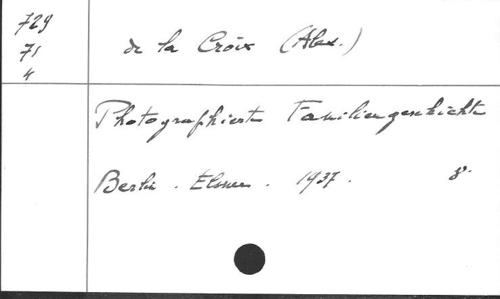 729
71
4
de la Croix (Alex.)
Photographierte Familiengeschichte
Berlin. Elsner. 1937. 8°.